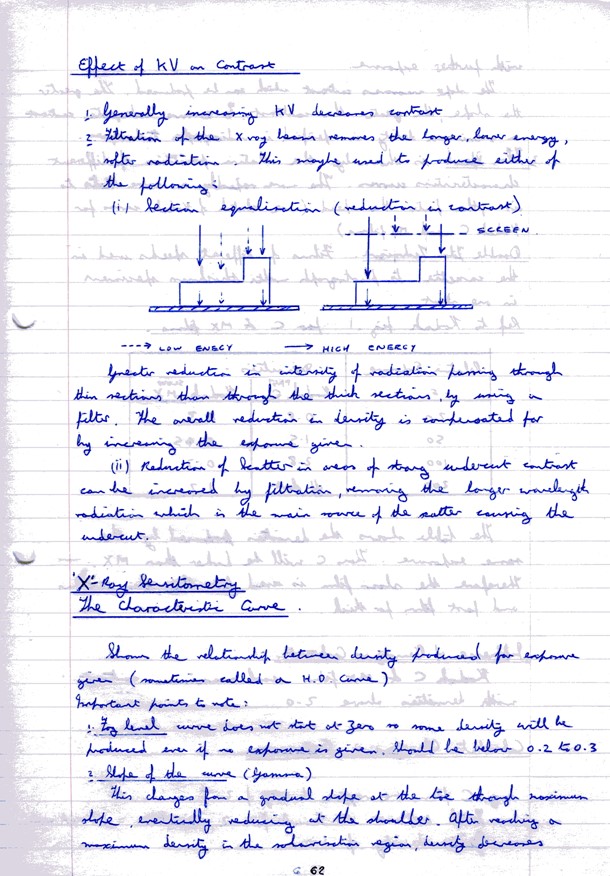 Effect of KV on Contrast
1. Generally increasing KV decreases contrast
2. Filtration of the X ray beam removes the longer, lower energy,
softer radiation. This maybe used to produce either of
the following:
(i) Section equalisation (reduction in contrast)
SCREEN.
LOW ENEGY HIGH ENERGY
Greater reduction in intensity of radiation passing through
thin sections than through the thick sections, by using a
filter. The overall reduction in density is compensated for
by increasing the exposure given.
(ii) Reduction of Scatter in areas of strong undercut contrast
can be increased by filtration, removing the longer wavelength
radiation which is the main source of the scatter causing the
undercut.
'X'-Ray Sensitometry
The Characteristic Curve.
Shows the relationship between density produced for exposure
given (sometimes called a H.D. curve)
Important points to note:
1. Fog level curve does not start at zero so some density will be
produced even if no exposure is given. Should be below 0.2 to 0.3
2. Slope of the curve (Gamma)
This changes from a gradual slope at the toe through maximum
slope, eventually reducing at the shoulder. After reaching a
maximum density in the solarisation region, density decreases
62